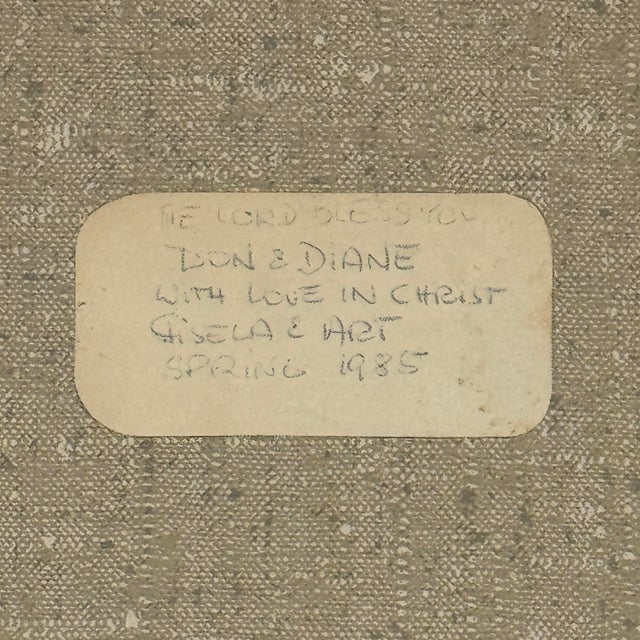 THE LORD BLESS YOU
DON & DIANE
WITH LOVE IN CHRIST
GISELA & ART
SPRING 1985